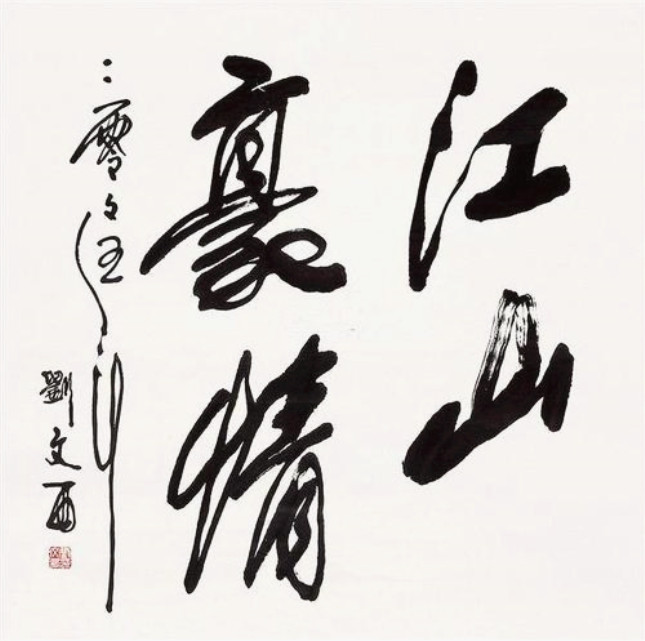 江山
豪情
二零零伍年
劉文西